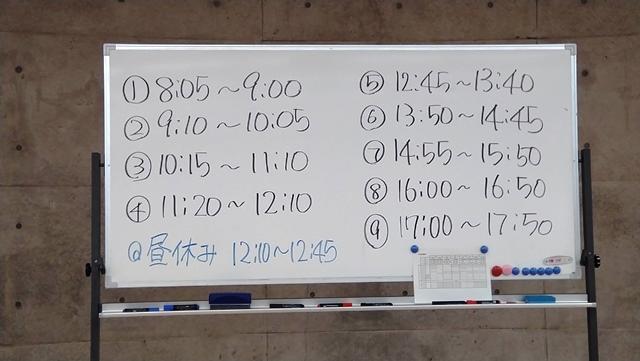 ① 8:05～9:00
② 9:10～10:05
③ 10:15～11:10
④ 11:20～12:10
@昼休み 12:10～12:45
⑤ 12:45～13:40
⑥ 13:50～14:45
⑦ 14:55～15:50
⑧ 16:00～16:50
⑨ 17:00～17:50